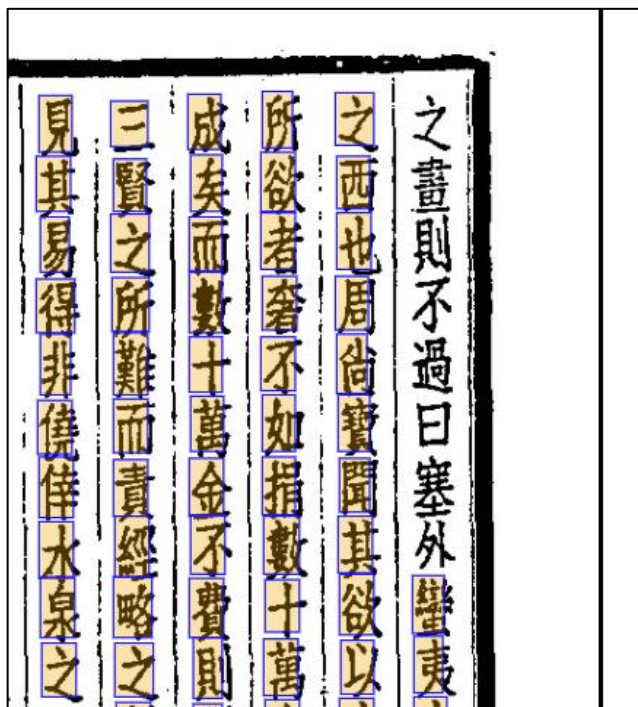 之畫則不過曰塞外蠻夷
之西也周尙寶聞其欲以
所欲者奢不如捐數十萬
成矣而數十萬金不費則
三賢之所難而責經略之
見其易得非僥倖水泉之